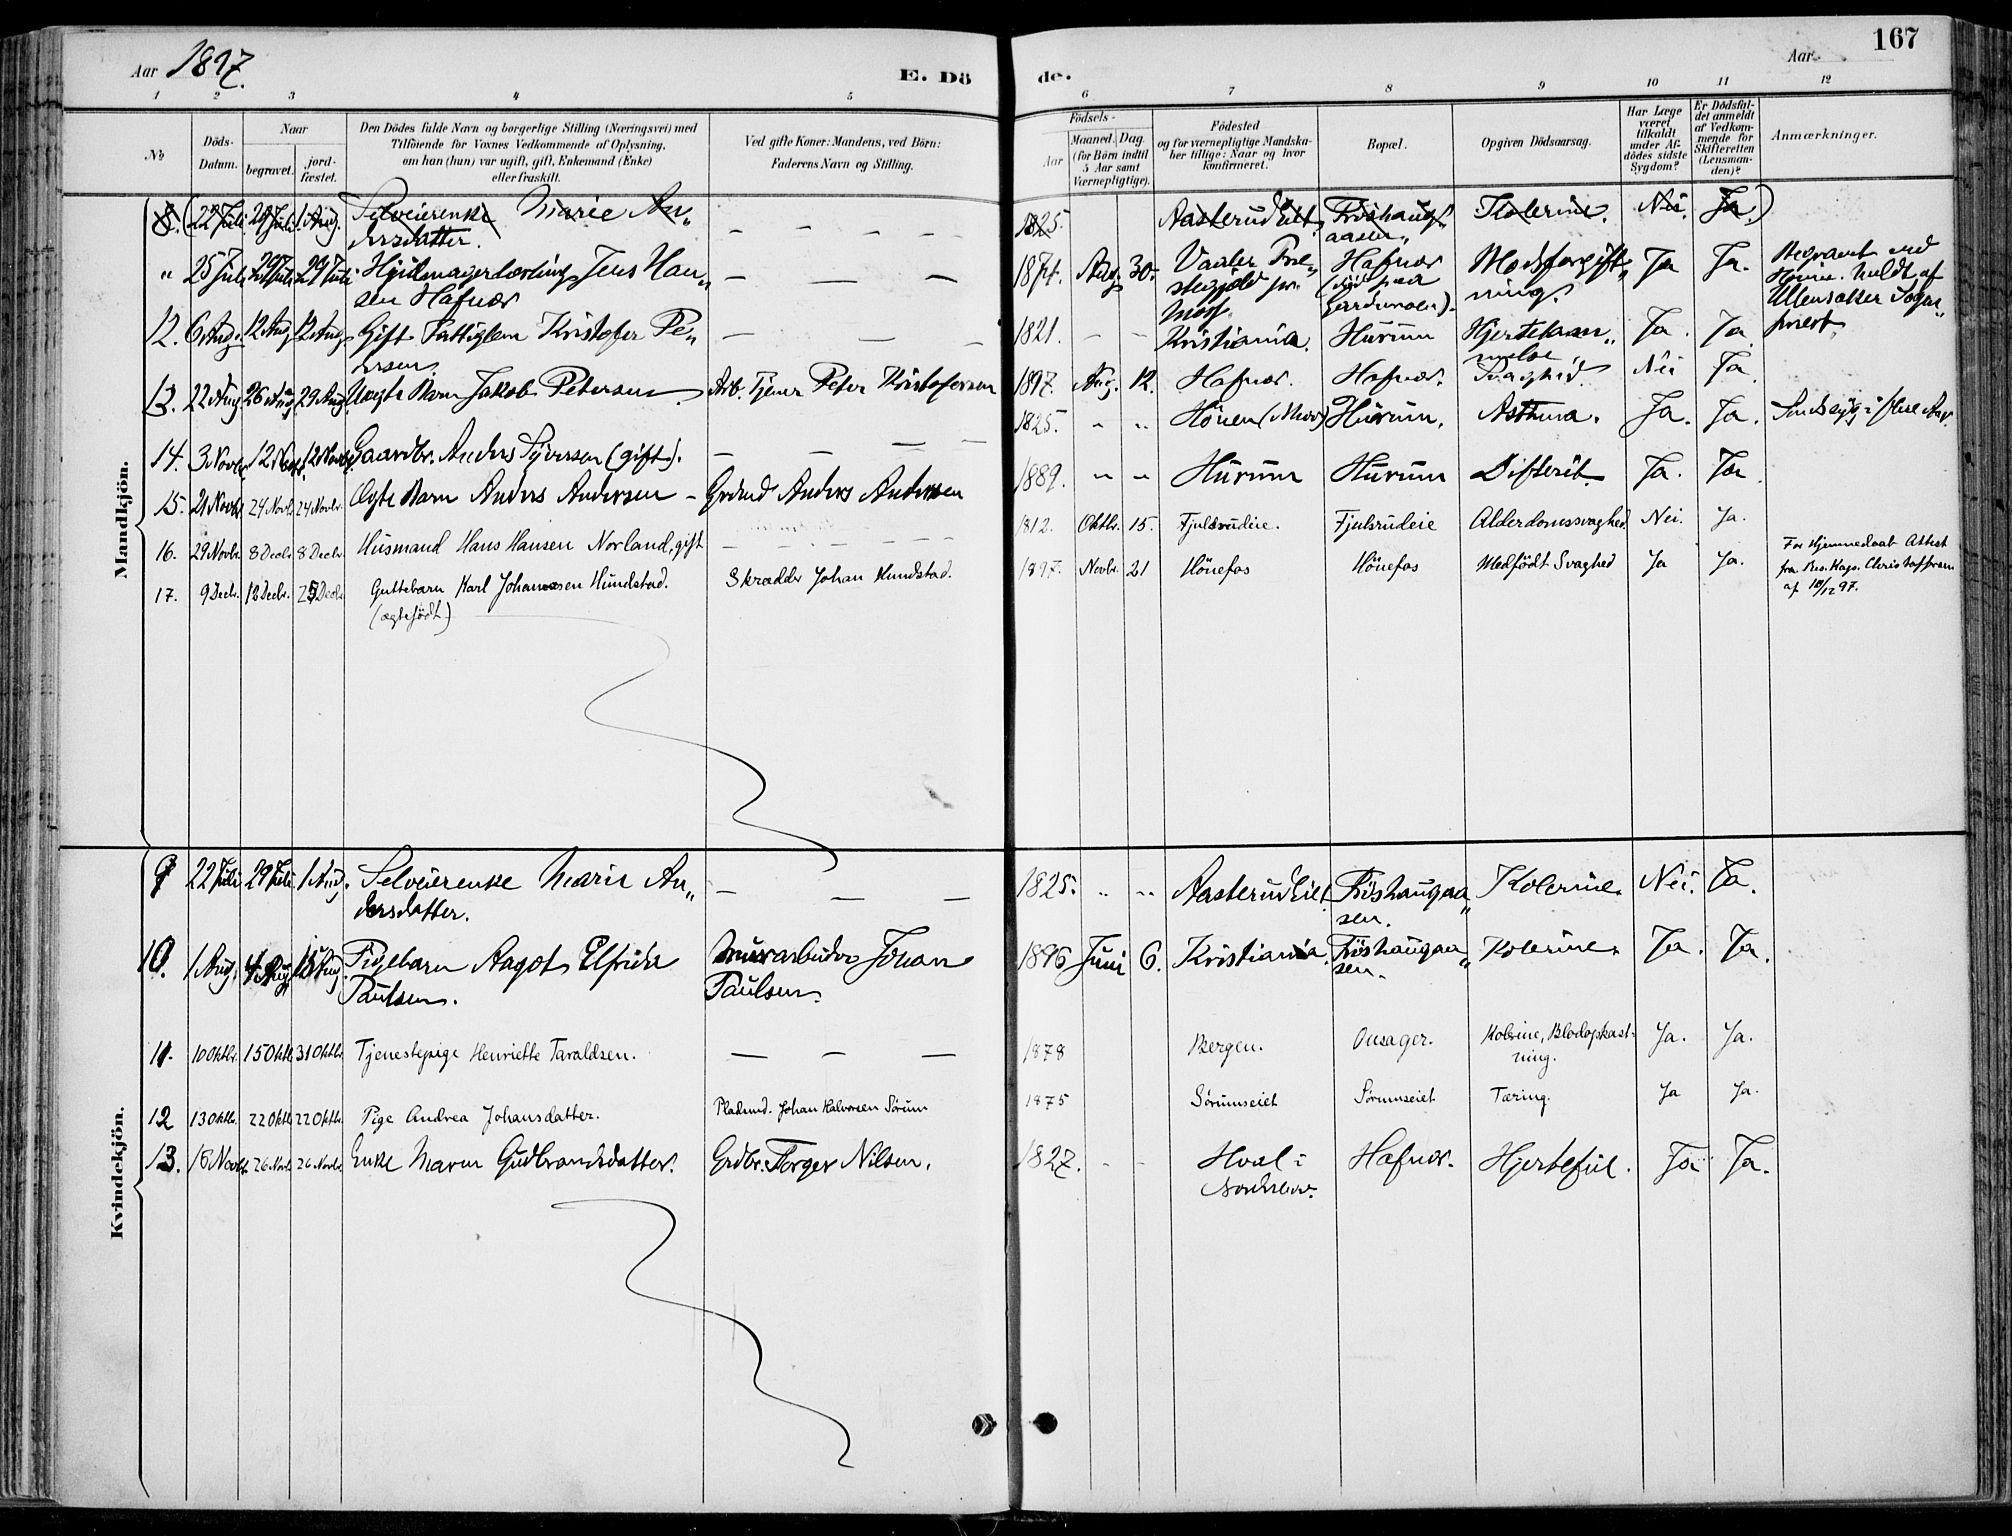 Aar 1897.
E. Dö
de.
Aar
167
1 2 3 4 5 6 7 8 9 10 11 12
No
Döds-Datum.
Naar
begravet.
jord-fæstet.
Den Dödes fulde Navn og borgerlige Stilling (Næringsvei) med
Tilföiende for Voxnes Vedkommende af Oplysning,
om han (hun) var ugift, gift, Enkemand (Enke)
eller fraskilt.
Ved gifte Koner: Mandens, ved Börn:
Faderens Navn og Stilling.
Födsels-
Aar
Maaned. Dag.
(for Börn indtil
5 Aar samt
Værnepligtige).
Födested
og for værnepligtige Mandska-
ber tillige: Naar og hvor
konfirmeret.
Bopæl.
Opgiven Dödsaarsag.
Har Læge
været
tilkaldt
under Af-
dödes sidste
Sygdom?
Er Dödsfal-
det anmeldt
af Vedkom-
mende for
Skifteretten
(Lensman-
den)?
Anmærkninger.
Mandkjön.
8. (22 Juli 29 Juli 1 Aug. Selveierenke Marie An„ — — — — — 1825. Aasterudeiet Fröshaug„ Kolerine. Nei. Ja.)
dersdatter. aasen.
" 25 Juli 29 Juli 29 Juli Hjulmagerlærling Jens Han„ — — — 1874. Aug. 30. Vaaler Præ„ Hafnor Blodforgift„ Ja Ja. Begravet ved
sen Hafnor stegjeld pr. (död paa ning. Hovin. Anldt. af
Moss. Gardermoen). Ullensaker Sogne„
12. 6 Aug. 12 Aug 12 Aug Gift Fattiglem Kristofer Pe„ — — — 1821. - - Kristiania. Hurum Hjertelam„ Ja. Ja. prest.
ersen. melse
13. 22 Aug 26 Aug 29 Aug. Uægte Barn Jakob Petersen. Arb. Tjener Peter Kristofersen 1897. Aug. 12. Hafnor. Hafnor. Svaghed. Nei Ja.
14. 3 Novbr. 12 Novbr. 12 Novbr. Gaardbr. Anders Syversen (gift). — — — — 1825. " " Hönen (Moor) Hurum. Asthma. Ja. Ja. Sindssyg i flere Aar.
15. 21 Novbr. 24 Novbr. 24 Novbr. Ægte Barn Anders Andersen - Grdmd Anders Andersen 1889. " " Hurum Hurum Difterit. Ja. Ja.
16. 29 Novbr. 8 Decbr. 8 Decbr. Husmand Hans Hansen Norland, gift — — — — — 1812. Oktbr. 15. Fjulsrudeie. Fjulsrudeie Alderdomssvaghed Nei. Ja.
17. 9 Decbr. 12 Decbr. 25 Decbr. Guttebarn Karl Johansen Hundstad. Skrædder Johan Hundstad. 1897. Novbr. 21 Hönefos Hönefos Medfödt Svaghed Ja Ja. For Hjemmedaab Attest
(ægtefödt) fra Res. Kap. Christoffersen
af 10/12 97.
Kvindekjön.
9 22 Juli 29 Juli 1 Aug. Selveierenke Marie An„ — — — 1825. " " Aasterudeiet Fröshaugaa„ Kolerine. Nei. Ja.
dersdatter. sen.
10. 1 Aug. 4 Aug. 15 Aug. Pigebarn Aagot Elfrida Murarbeider Johan 1896 Juni 6. Kristiania. Fröshaugaa„ Kolerine. Ja. Ja.
Paulsen. Paulsen. sen.
11. 10 Oktbr. 15 Oktbr. 31 Oktbr. Tjenestepige Henriette Taraldsen. — — — 1878 Bergen. Onsager. Kolerine, Blodopkast- Ja. Ja.
ning.
12 13 Oktbr. 22 Oktbr. 22 Oktbr. Pige Andrea Johansdatter. Pladsmd. Johan Halvorsen Sörum 1875 Sörumseiet Sörumseiet Tæring. Ja Ja.
13. 18 Novbr. 26 Novbr. 26 Novbr. Enke Maren Gudbrandsdatter. Grdbr. Torger Nilsen. 1827. - - Hval i Hafnor. Hjertefeil. Ja Ja.
Norderhov.